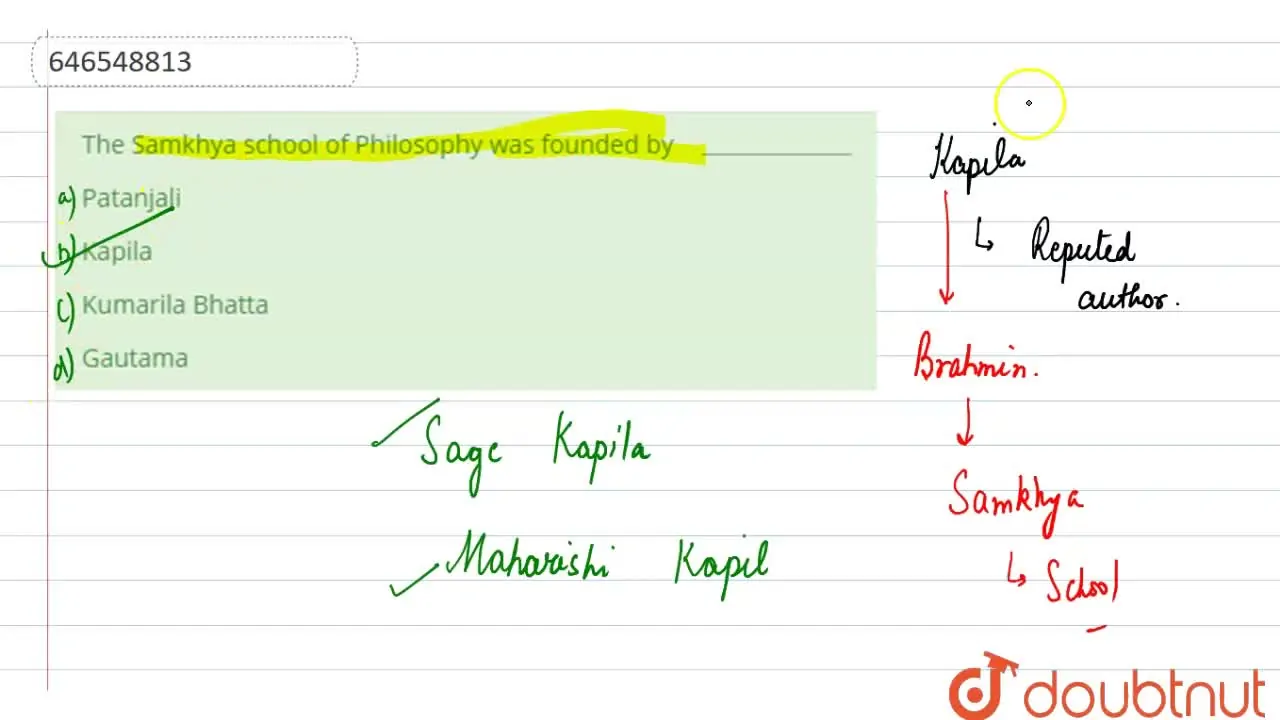 646548813
The Samkhya school of Philosophy was founded by ___________
a) Patanjali
b) Kapila
c) Kumarila Bhatta
d) Gautama
Sage Kapila
Maharishi Kapil
Kapila
Reputed
author.
Brahmin.
Samkhya
School
doubtnut